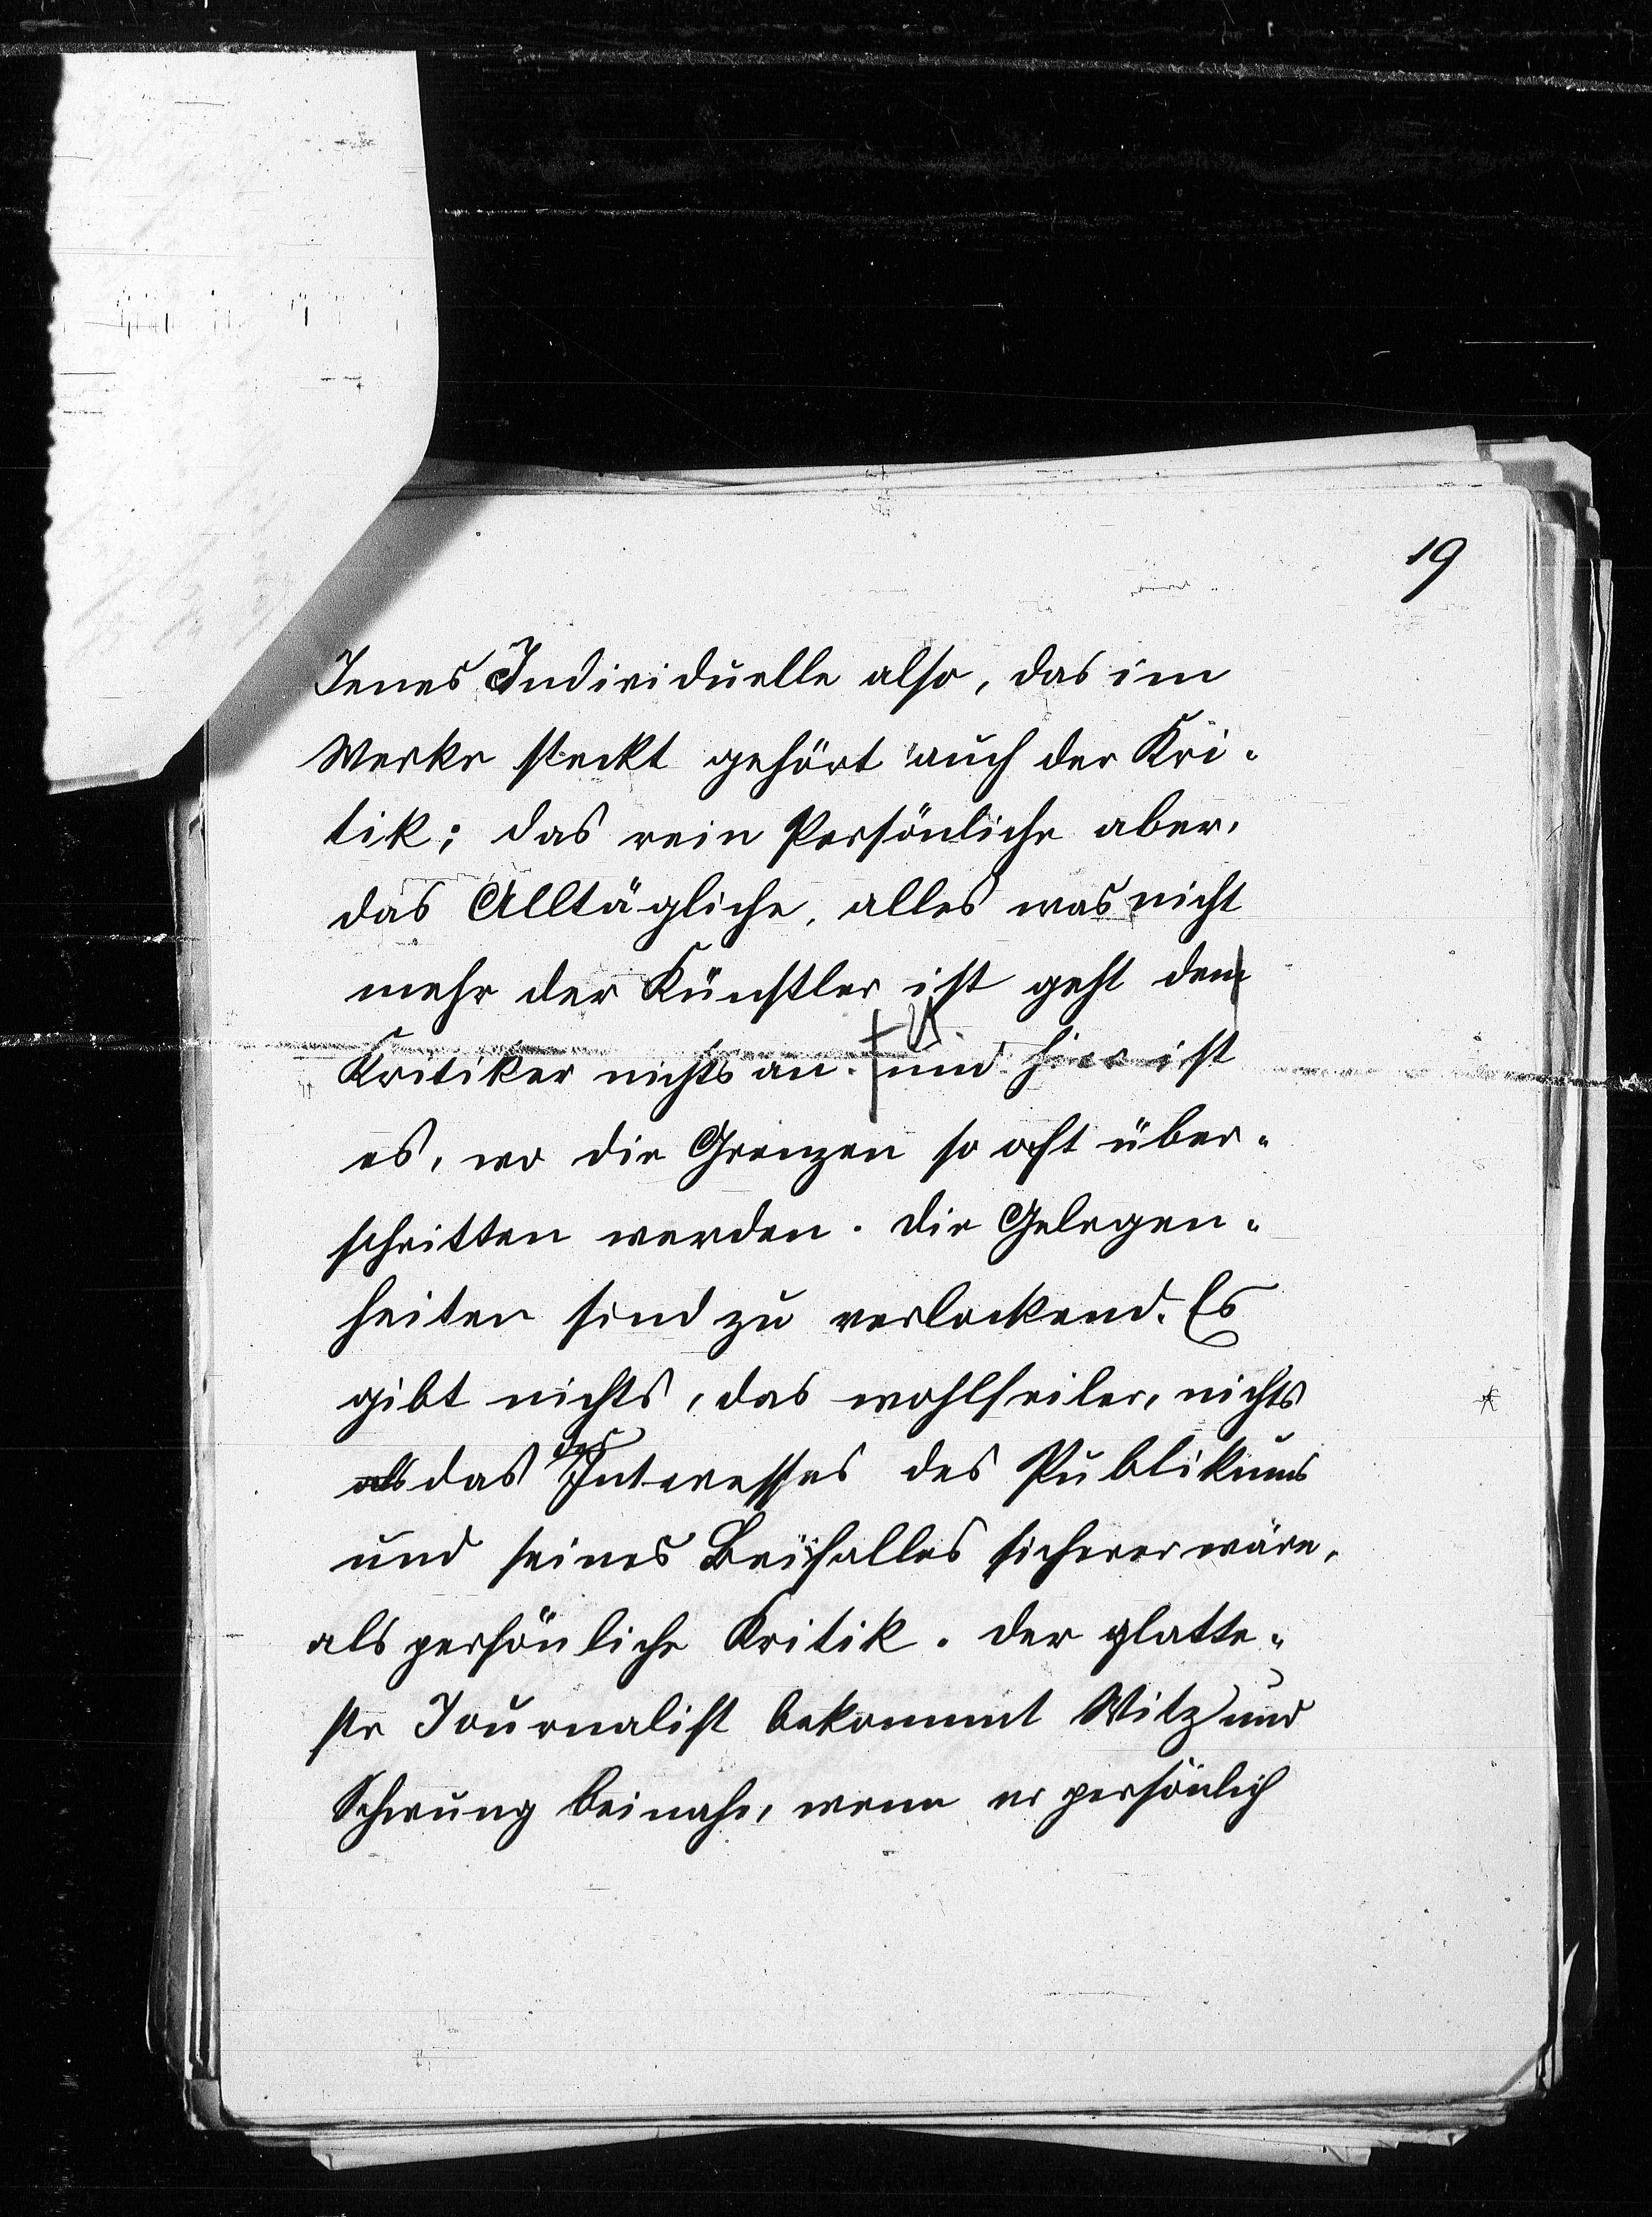 19
Jenes Individuelle also, das im
Werke steckt gehört auch der Kri-
tik; das rein Persönliche aber,
das Alltägliche, alles was nicht
mehr der Künstler ist geht den
Kritiker nichts an. Und hier ist
es, wo die Grenzen so oft über-
schritten werden. Die Gelegen-
heiten sind zu verlockend. Es
gibt nichts, das wohlfeiler, nichts
das des Interesses des Publikums
und seines Beifalles sicherer wäre,
als persönliche Kritik. Der glatte-
ste Journalist bekommt Witz und
Schwung beinahe, wenn er persönlich